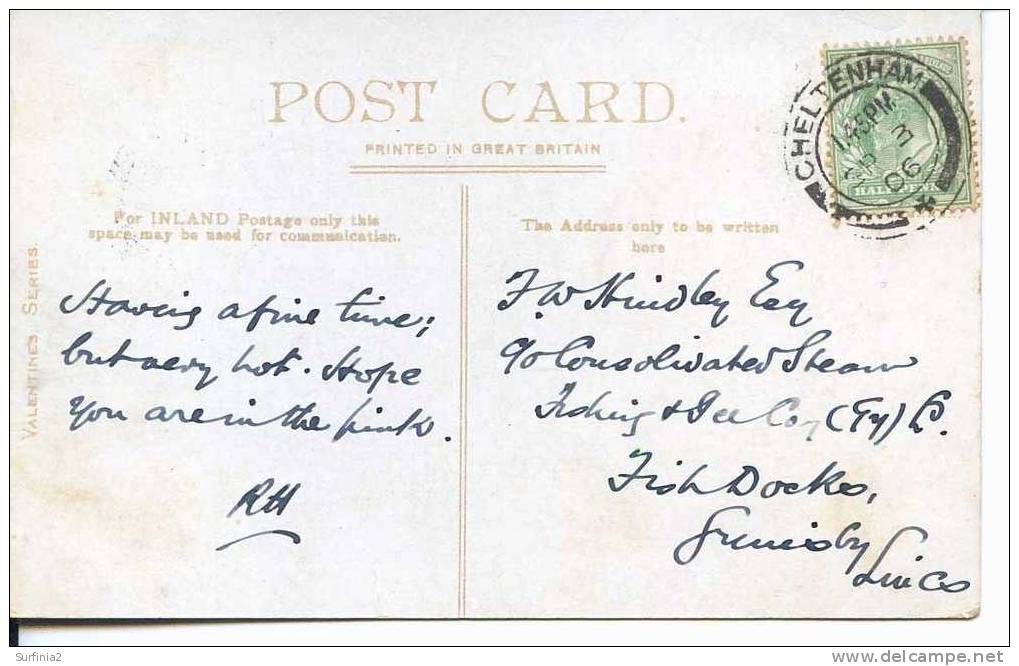 POST CARD.
PRINTED IN GREAT BRITAIN
For INLAND Postage only this
space may be used for communication.
The Address only to be written
here
VALENTINES SERIES.
CHELTENHAM
1.45PM
3
06
HALFPENNY
Having a fine time;
but very hot. Hope
you are in the pink.
RH
F. W Hindley Esq
c/o Consolidated Steam
Fishing & Ice Coy (Gy) L.
Fish Docks,
Grimsby
Lincs
Surfinia2
www.delcampe.net